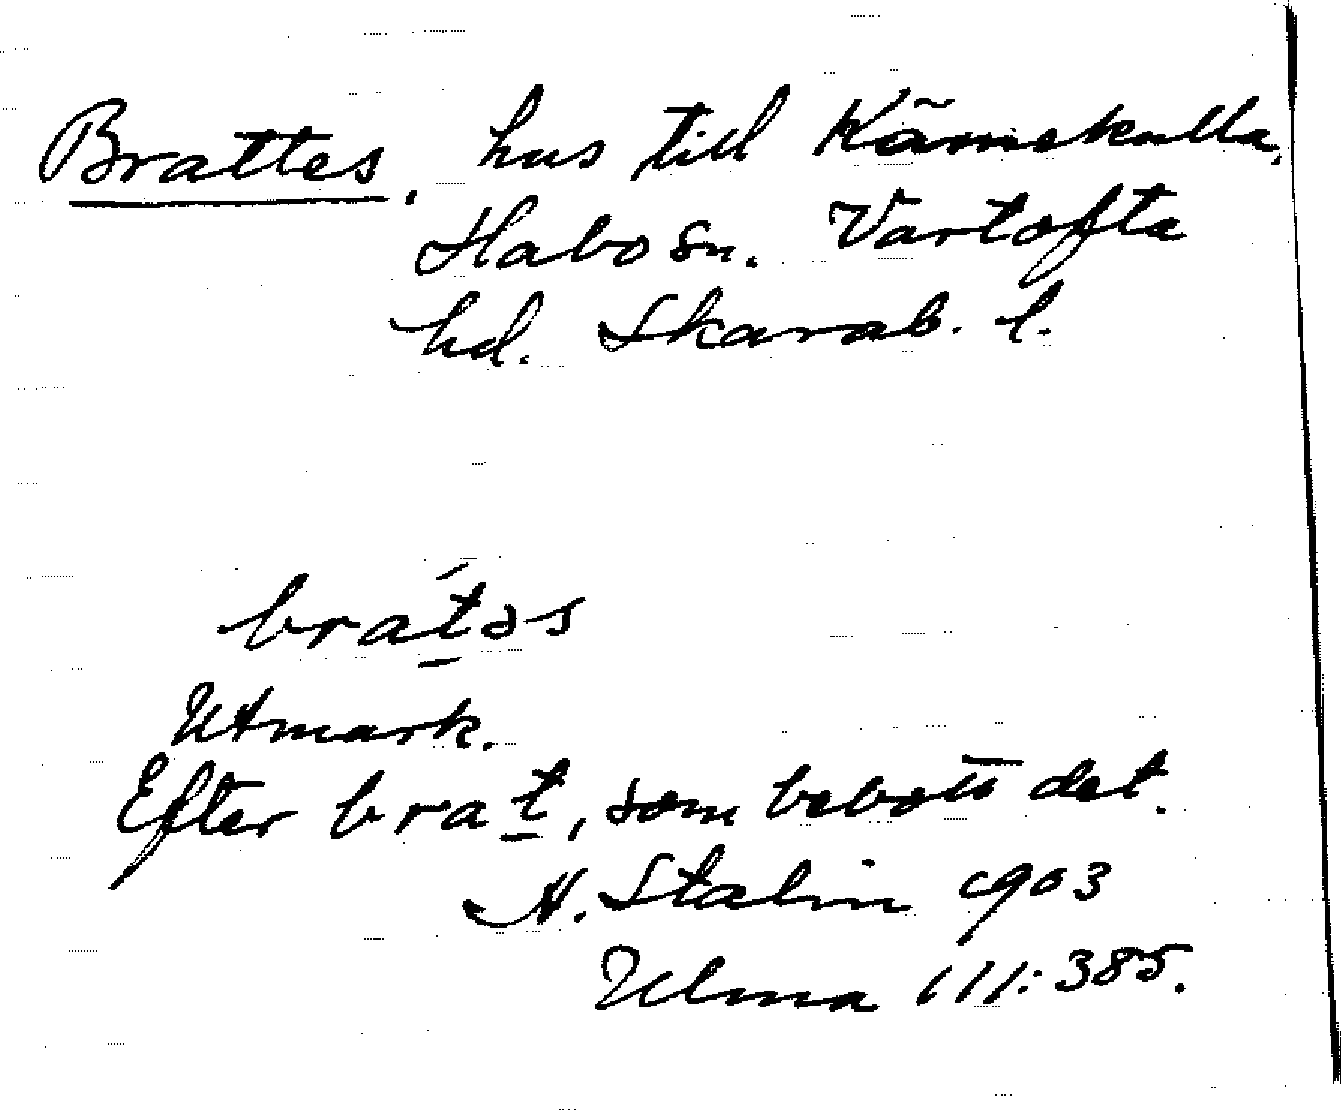 Brattes, hus till Kämskulla,
Habo sn. Vartofta
hd. Skarab. l.
bratəs
Utmark.
Efter brat, som bebott det.
N. Stalin 1903
Ulma 111:385.